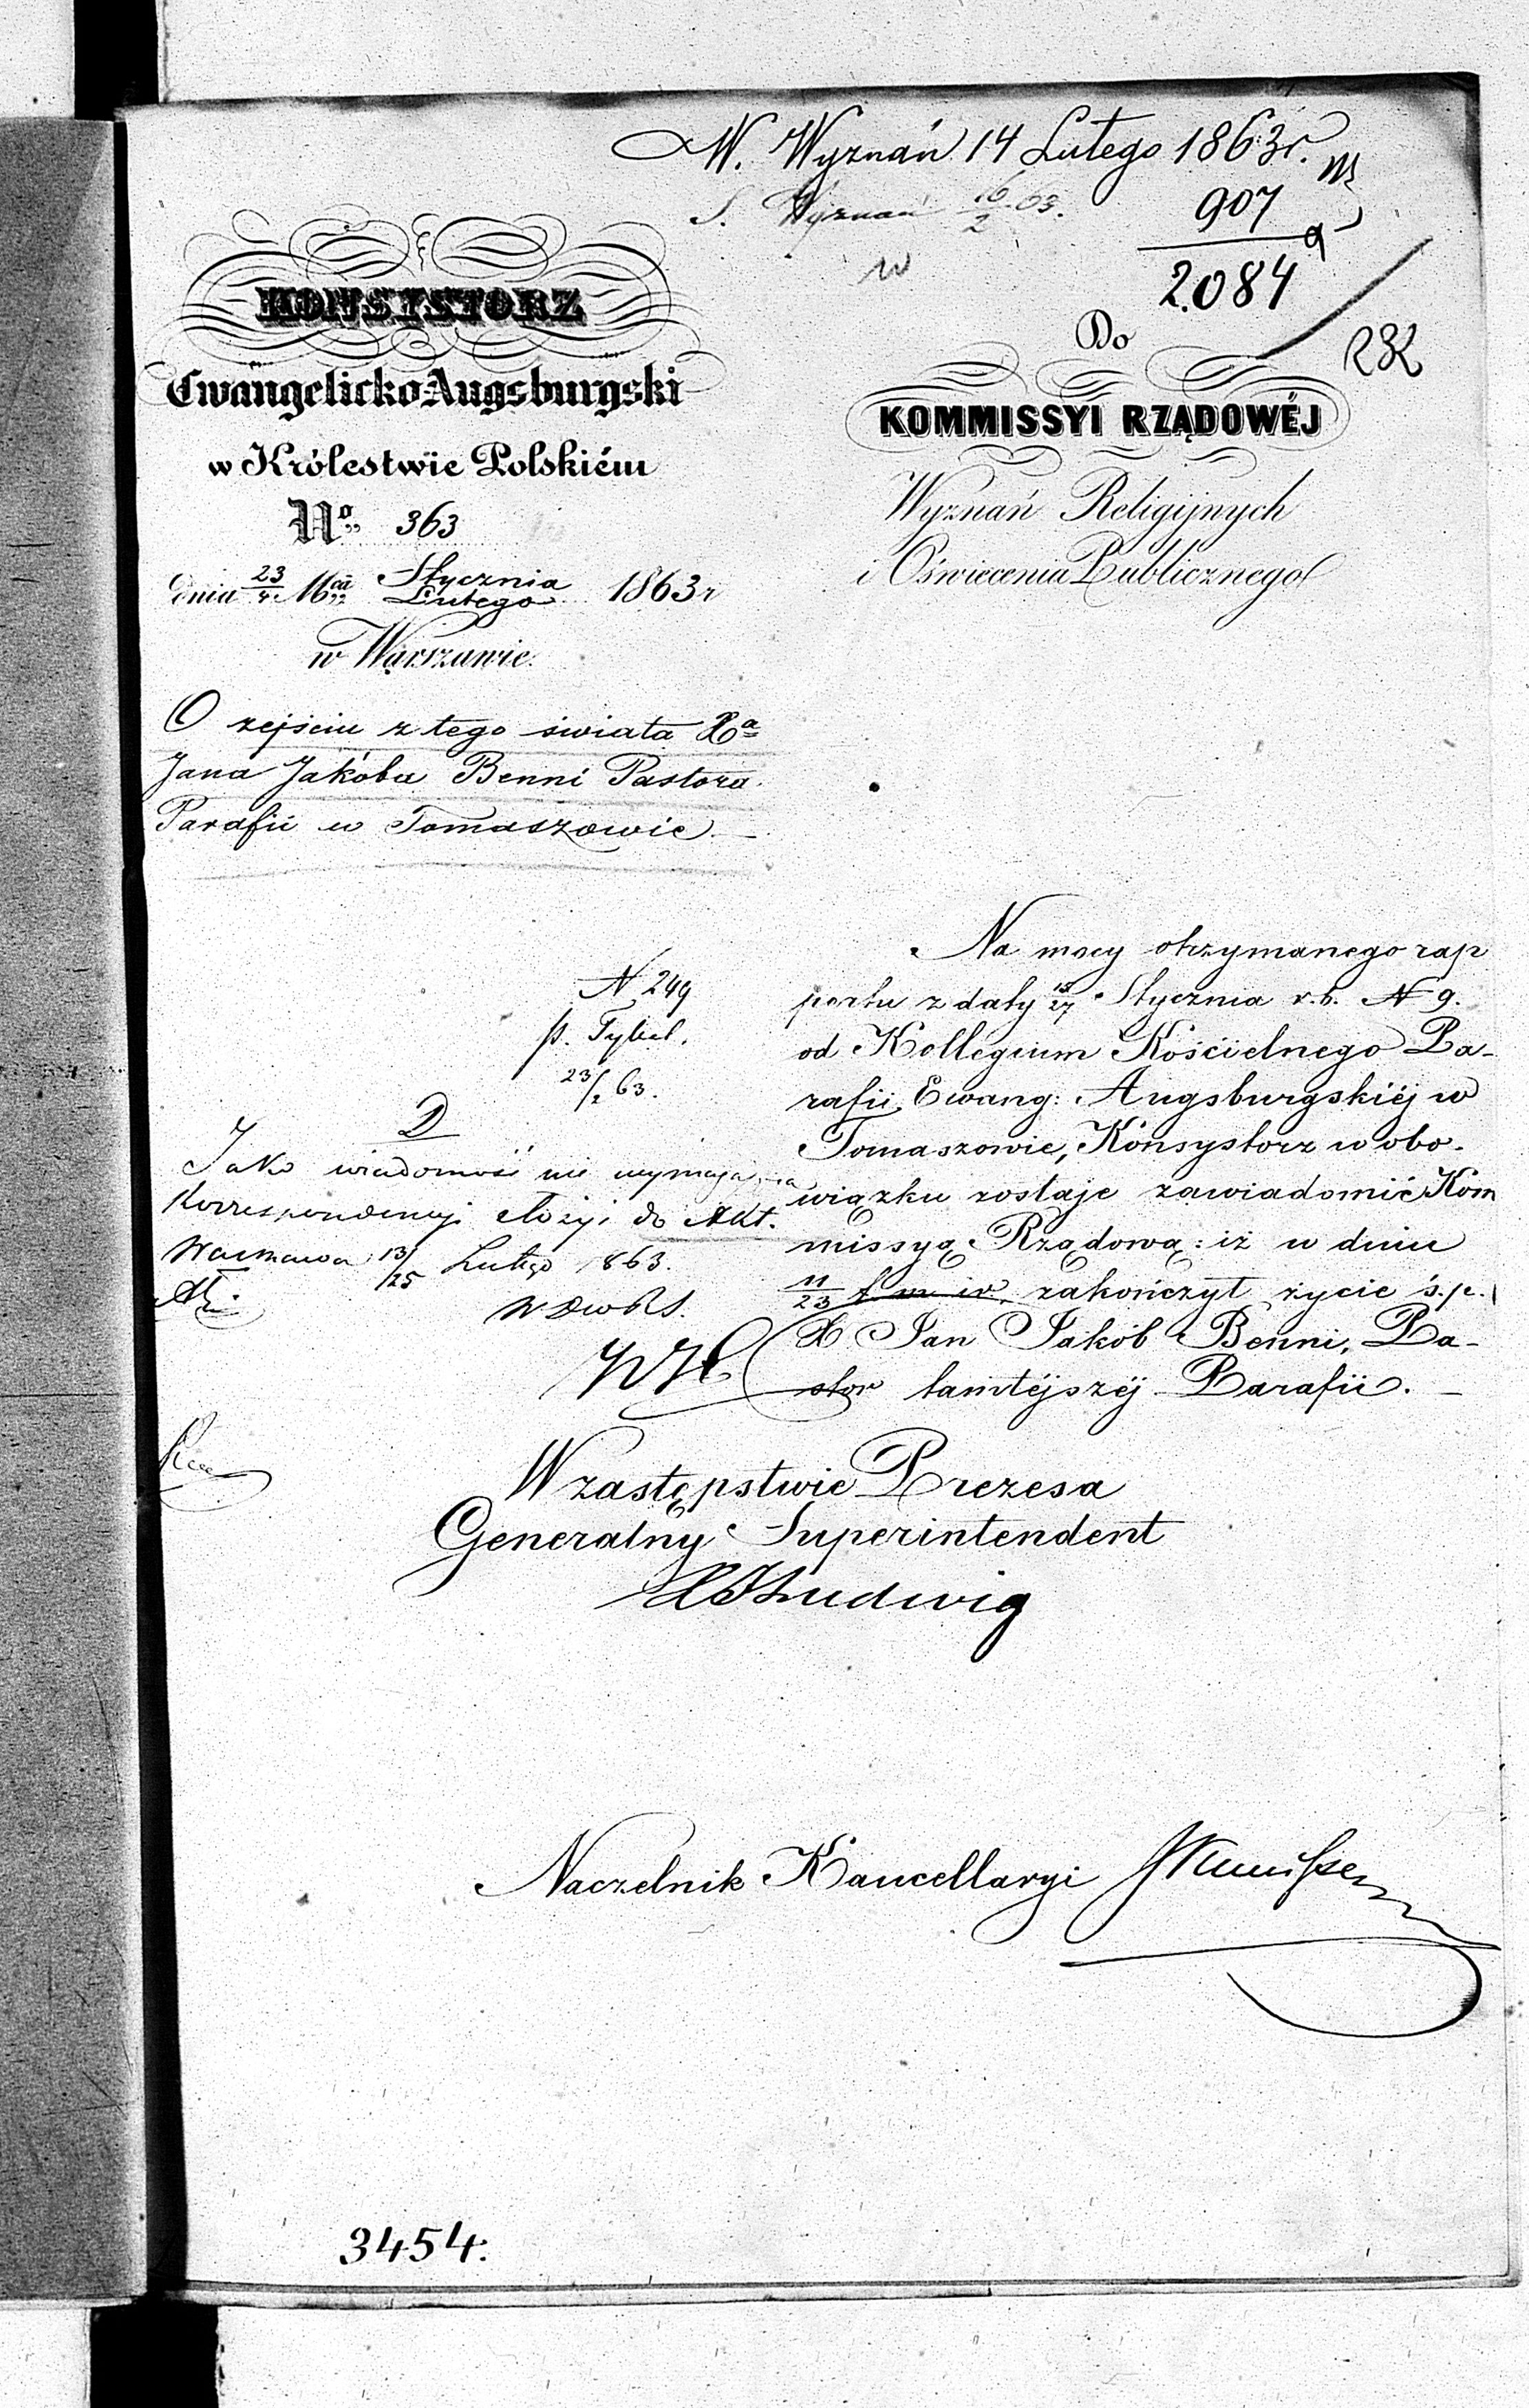 W. Wyznań 14 Lutego 1863r.
S. Wyznań 16/2 63.
907
2084
232
KONSYSTORZ
Ewangelicko-Augsburgski
w Królestwie Polskiém
No. 363
dnia 23/4 Mca Stycznia/Lutego 1863 r
w Warszawie.
O zejściu z tego świata Xa
Jana Jakóba Benni Pastora
Parafii w Tomaszowie.
Do
KOMMISSYI RZĄDOWÉJ
Wyznań Religijnych
i Oświecenia Publicznego
Na mocy otrzymanego rap
portu z daty 15/27 Stycznia r. b. N 9.
od Kollegium Kościelnego Pa-
rafii Ewang: Augsburgskiéj w
Tomaszowie, Konsystorz w obo-
wiązku zostaje zawiadomić Kom
missyą Rządową: iż w dniu
11/23 t. m. i r. zakończył życie ś. p.
X Jan Jakób Benni, Pa-
stor tamtéjszéj Parafii.
N 249
p. Tybel.
23/2 63.
D
Jako wiadomość nie wymagająca
Korrespondencyi złożyć do Akt.
Warszawa 13/25 Lutego 1863.
W zastępstwie Prezesa
Generalny Superintendent
Ludwig
Naczelnik Kancellaryi
3454.